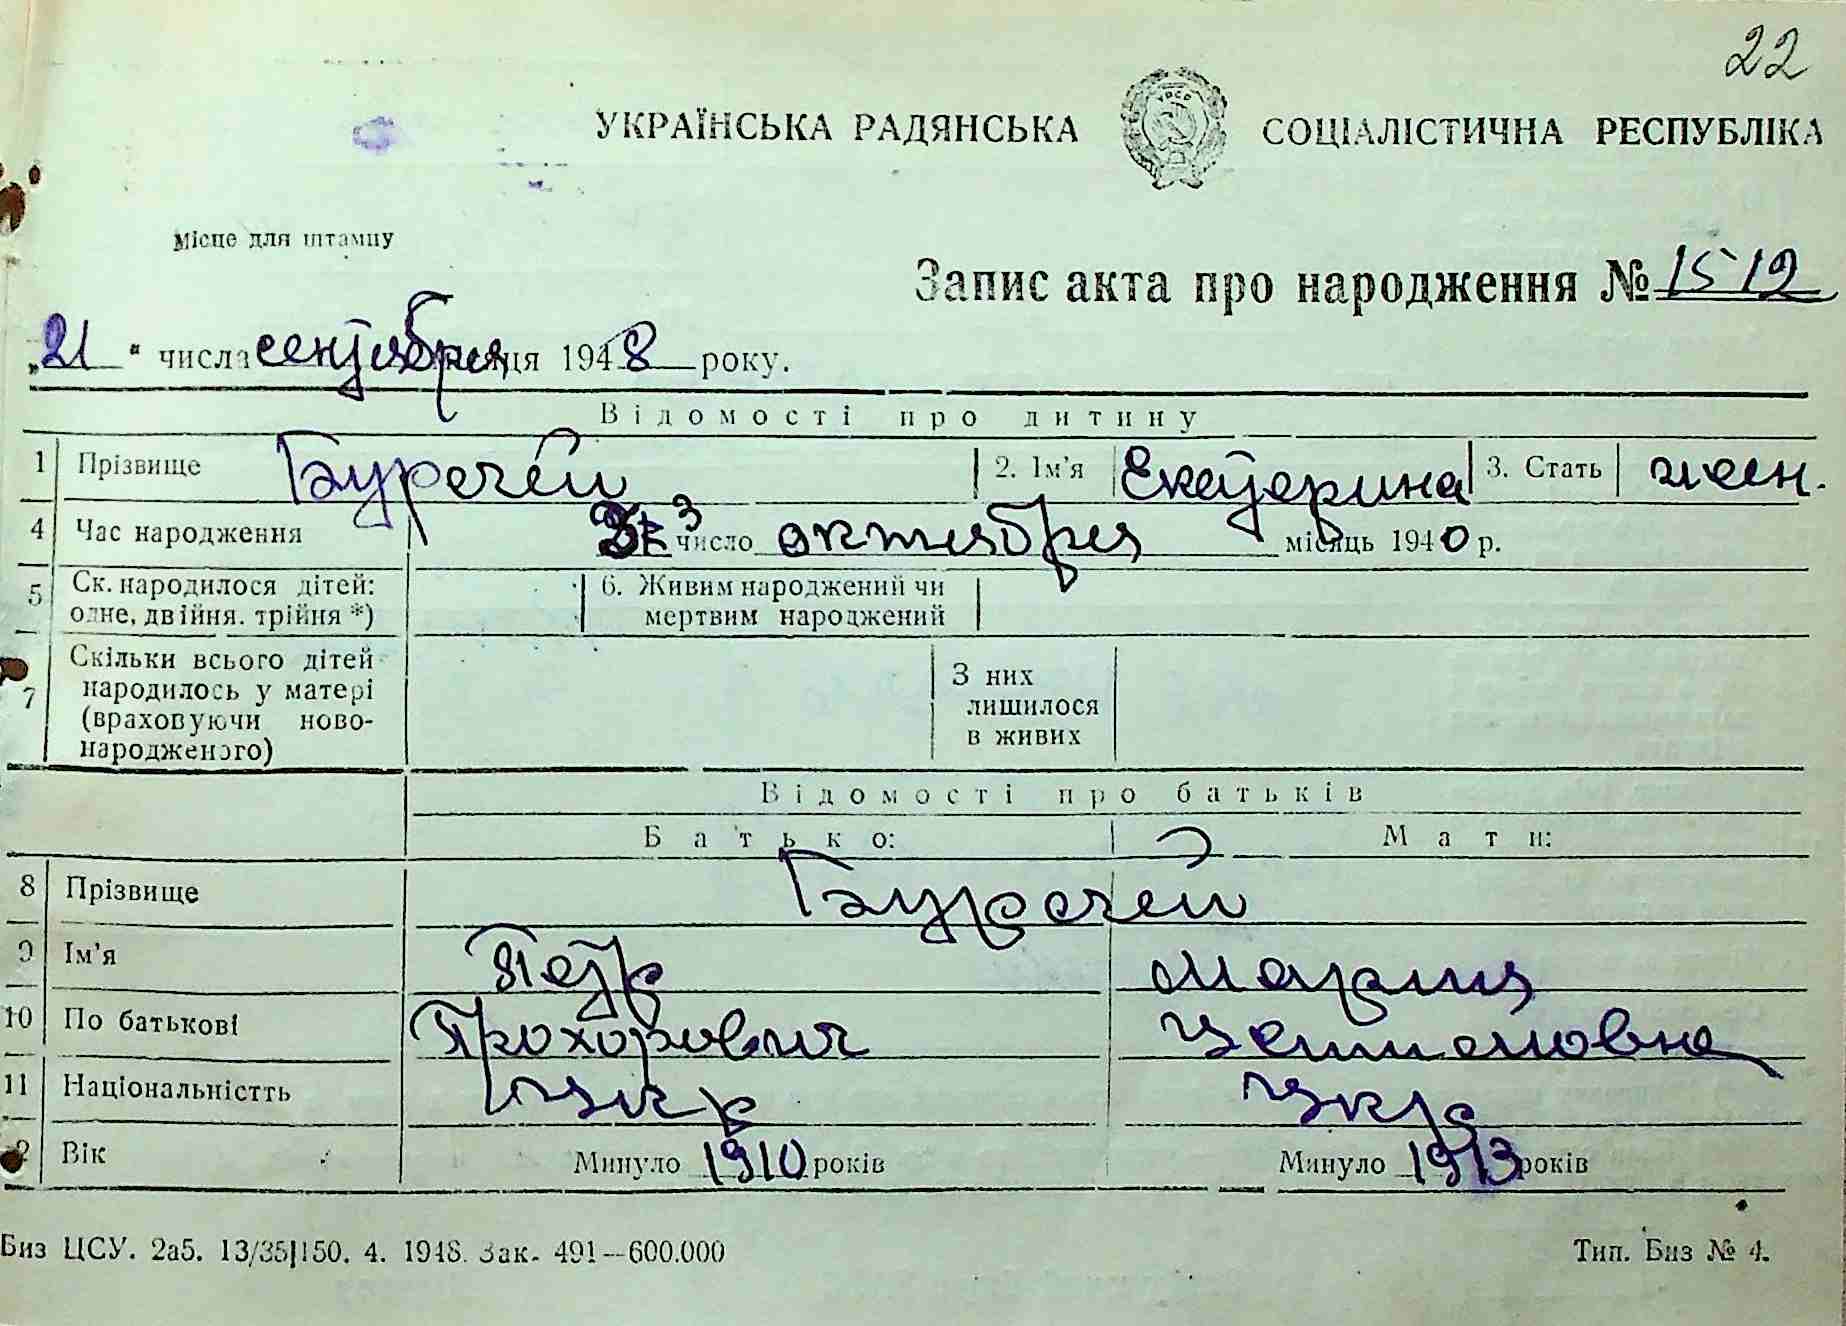 22
УКРАЇНСЬКА РАДЯНСЬКА СОЦІАЛІСТИЧНА РЕСПУБЛІКА
УРСР
Місце для штампу
Запис акта про народження № 1512
„21“ числа сентября місяця 1948 року.
Відомості про дитину
1 Прізвище Буречей 2. Ім'я Екатерина 3. Стать жен.
4 Час народження 3 число октября місяць 1940 р.
5 Ск. народилося дітей: одне, двійня. трійня *) 6. Живим народжений чи мертвим народжений
7 Скільки всього дітей народилось у матері (враховуючи новонародженого) З них лишилося в живих
Відомості про батьків
Батько: Мати:
8 Прізвище Буречей
9 Ім'я Петр Мария
10 По батькові Прохорович
11 Національністть укр укр
12 Вік Минуло 1910 років Минуло 1913 років
Биз ЦСУ. 2а5. 13/35|150. 4. 1948. Зак. 491—600.000 Тип. Биз № 4.